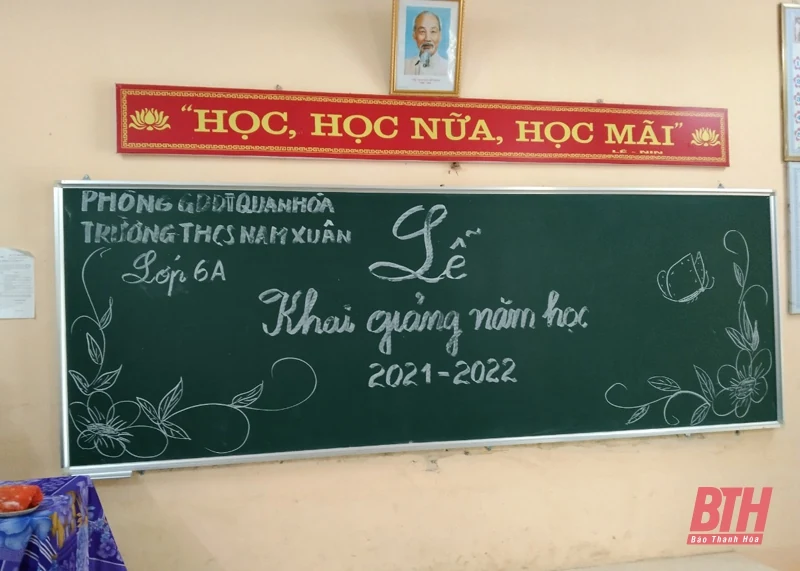 “HỌC, HỌC NỮA, HỌC MÃI”
LÊ - NIN
PHÒNG GDDT QUAN HÓA
TRƯỜNG THCS NAM XUÂN
Lớp 6A
Lễ
Khai giảng năm học
2021-2022
BTH
Báo Thanh Hóa